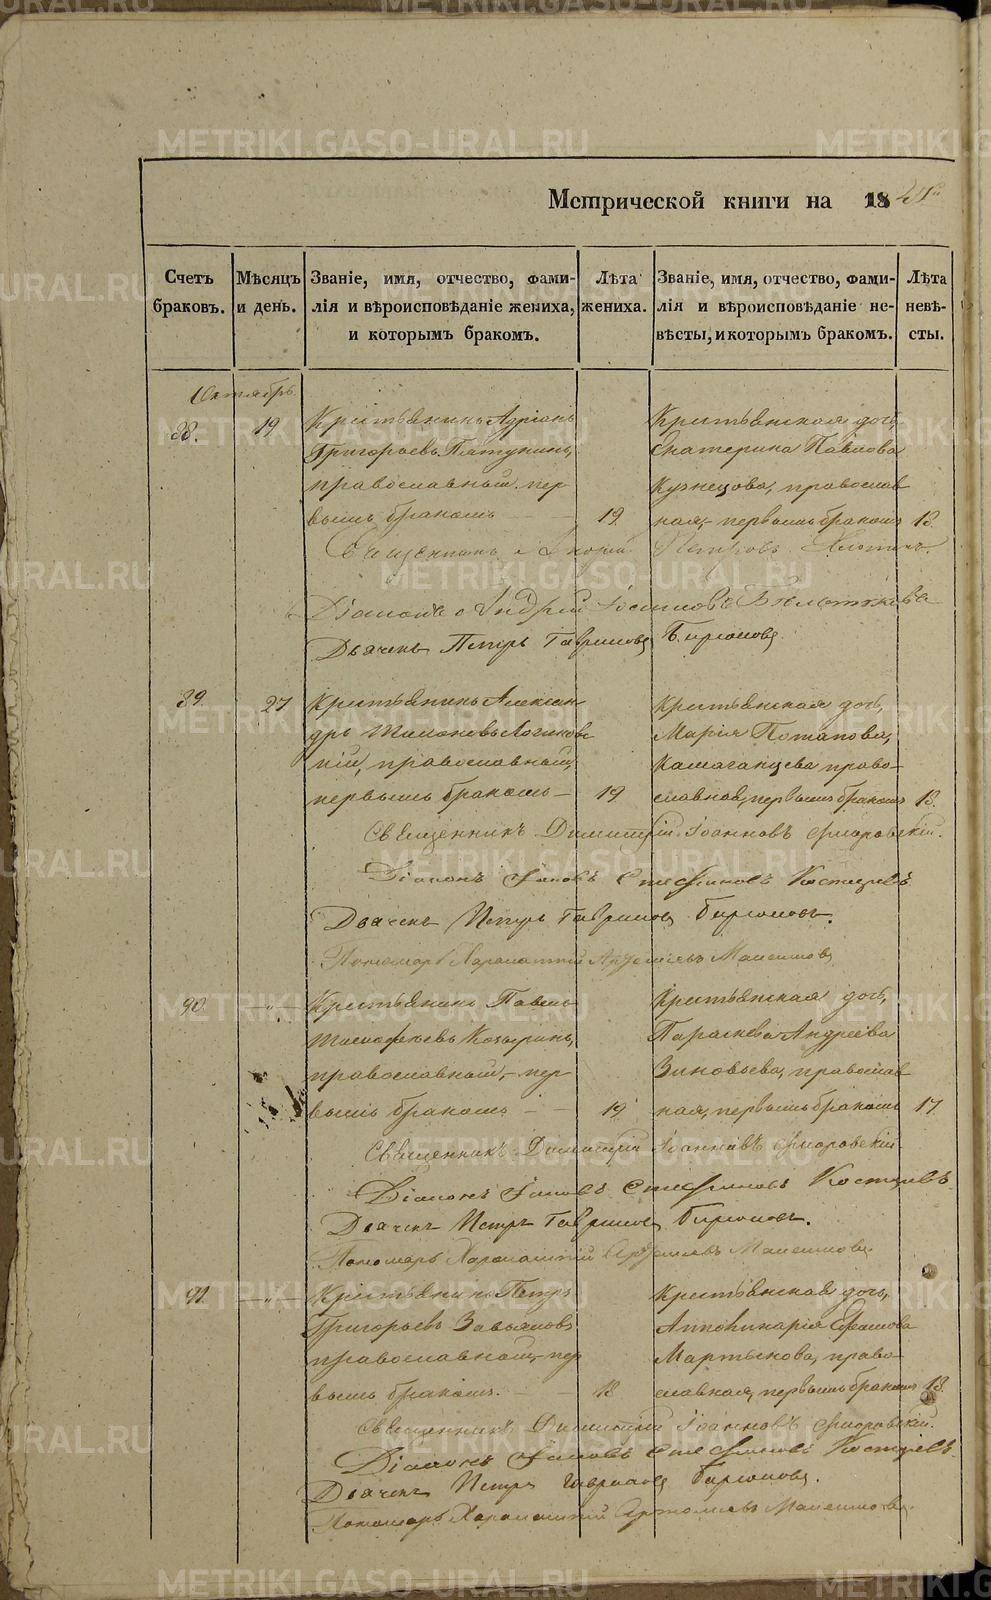 Метрической книги на 18
Счетъ браковъ.
Мѣсяцъ и день.
Званіе, имя, отчество, фами-
лія и вѣроисповѣданіе жениха,
и которымъ бракомъ.
Лѣта жениха.
Званіе, имя, отчество, фами-
лія и вѣроисповѣданіе не-
вѣсты, и которымъ бракомъ.
Лѣта невѣ-
сты.
Октябрь
88. 19 Крестьянинъ Адріанъ
Григорьевъ
православный, пер-
вымъ бракомъ 19
Крестьянская дочь,
Екатерина Павлова
Кузнецова, православ
ная, первымъ бракомъ 18.
Священникъ Петровъ
Діаконъ Андрей
Дьячекъ Петръ Гавриловъ Бирюковъ
89. 27 Крестьянинъ Алексан
дръ
православный,
первымъ бракомъ 19
Крестьянская дочь,
Марія Потапова,
право-
славная, первымъ бракомъ 18.
Священникъ Димитрій Іоанновъ Флоровскій.
Діаконъ Іаковъ Стефановъ Костаревъ
Дьячекъ Петръ Гавриловъ Бирюковъ.
Пономарь Харалампій Артемьевъ
90 Крестьянинъ Павелъ
Тимофеевъ Козыринъ,
православный, пер
вымъ бракомъ 19
Крестьянская дочь,
Параскева Андреева
Зиновьева, православ
ная, первымъ бракомъ 17
Священникъ Димитрій Іоанновъ Флоровскій
Діаконъ Іаковъ Стефановъ Костаревъ
Дьячекъ Петръ Гавриловъ Бирюковъ.
Пономарь Харалампій Артемьевъ
91 Крестьянинъ Петръ
Григорьевъ Завьяловъ
православный, пер
вымъ бракомъ. 18
Крестьянская дочь,
Ефимова
Мартынова, право-
славная, первымъ бракомъ 18.
Священникъ Димитрій Іоанновъ Флоровскій.
Діаконъ Іаковъ Стефановъ Костаревъ
Дьячекъ Петръ Гавриловъ Бирюковъ.
Пономарь Харалампій Артемьевъ
METRIKI.GASO-URAL.RU